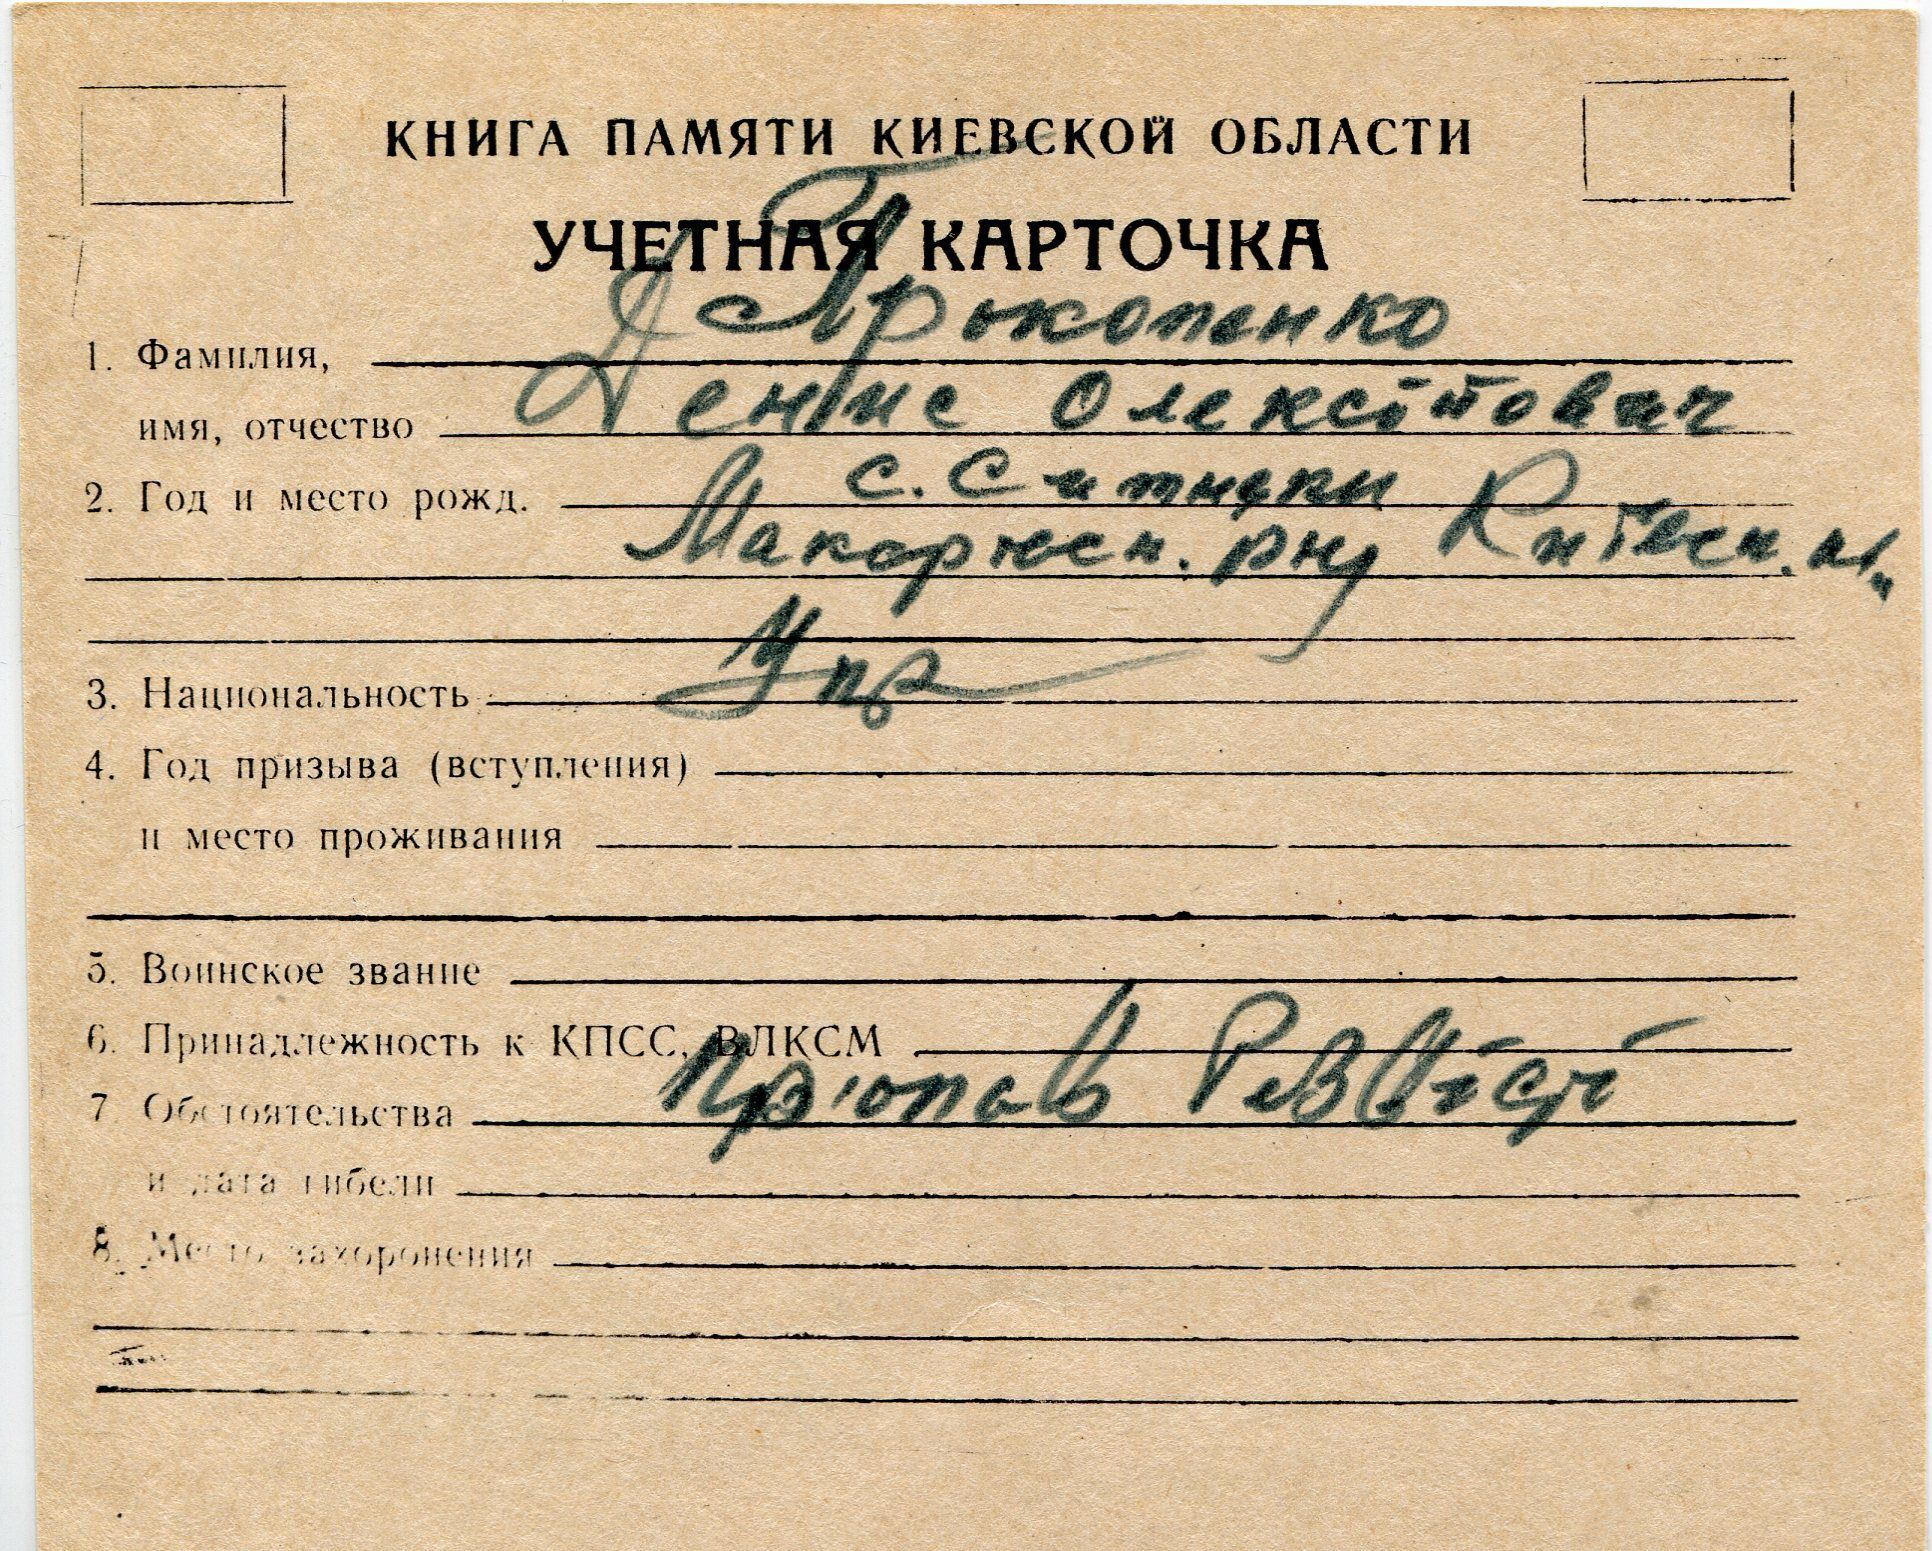 КНИГА ПАМЯТИ КИЕВСКОЙ ОБЛАСТИ
УЧЕТНАЯ КАРТОЧКА
1. Фамилия, Прокопенко
имя, отчество Денис Олексійович
2. Год и место рожд. с. Ситняки
Макарівск. р-ну
3. Национальность Укр
4. Год призыва (вступления)
и место проживания
5. Воинское звание
6. Принадлежность к КПСС, ВЛКСМ
7. Обстоятельства Пропав без вісті
и дата гибели
8. Место захоронения